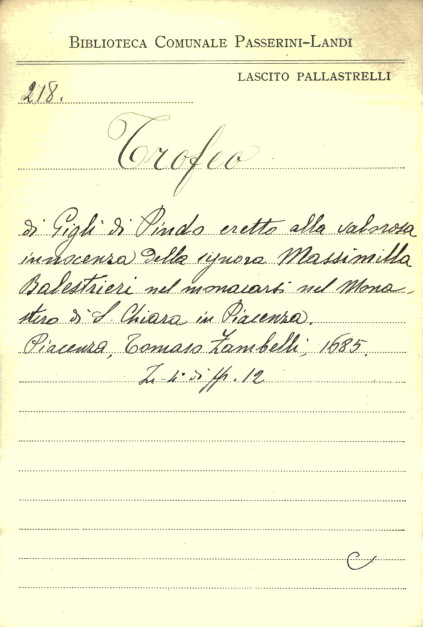 BIBLIOTECA COMUNALE PASSERINI-LANDI
LASCITO PALLASTRELLI
218.
Trofeo
di Gigli di Pindo eretto alla valorosa
innocenza della signora Massimilla
Balestrieri nel monacarsi nel Mona-
stero di S. Chiara in Piacenza.
Piacenza, Tomaso Zambelli, 1685.
di pp. 12
C